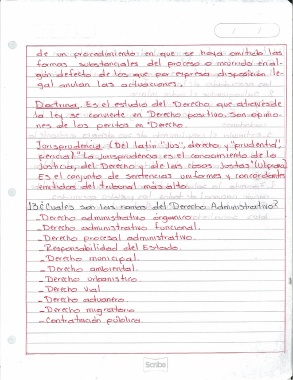 de un procedimiento en que se haya omitido las
formas substanciales del proceso o incurrido en al-
gún defecto de los que por expresa disposición le-
gal anulan las actuaciones.
Doctrina. Es el estudio del Derecho que
la ley se convierte en Derecho positivo. Son opinio-
nes de los peritos en Derecho
Jurisprudencia. (Del latín "Jus", derecho y "prudentia",
pericia). "La Jurisprudencia es el conocimiento de lo
Justicia, del Derecho y de las cosas Justas" (Ulpiano)
Es el conjunto de sentencias uniformes y concordantes
emitidas del tribunal mas alto.
13 ¿Cuales son las ramas del Derecho Administrativo?
- Derecho administrativo organico.
- Derecho administrativo funcional.
- Derecho procesal administrativo.
- Responsabilidad del Estado.
- Derecho municipal.
- Derecho ambiental.
- Derecho urbanistico.
- Derecho vial
- Derecho aduanero.
- Derecho migratorio
- Contratación pública.
Scribe